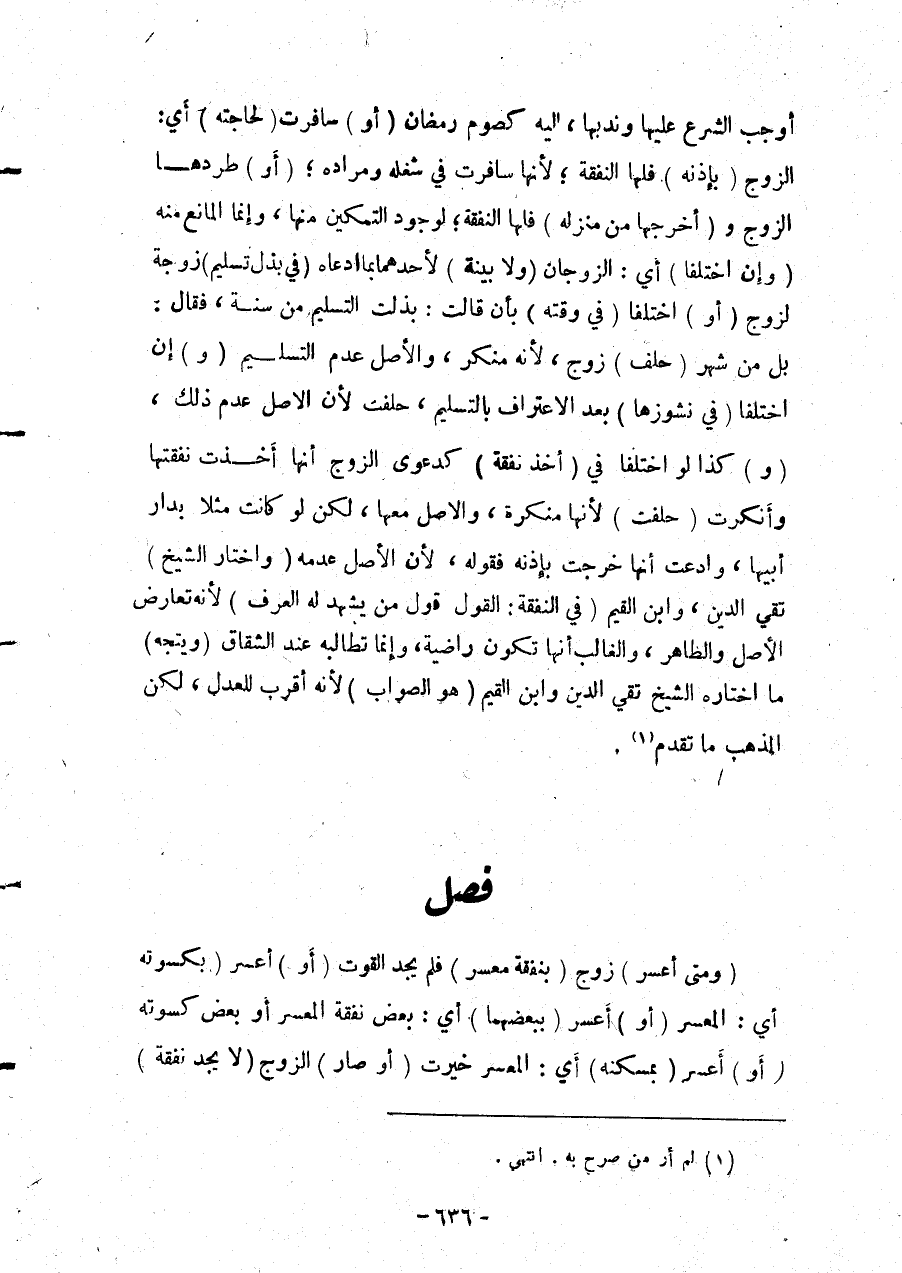 أوجب الشرع عليها وندبها ، اليه كصوم رمضان ( أو ) سافرت( لحاجته ) أي:
الزوج ( بإذنه ) فلها النفقة ؛ لأنها سافرت في شغله ومراده ؛ ( أو ) طردهـــا
الزوج و ( أخرجها من منزله ) فلها النفقة؛ لوجود التمكين منها ، وإنما المانع منه
( وإن اختلفا ) أي : الزوجان (ولا بينة ) لأحدهما بما ادعاه (في بذل تسليم) زوجة
لزوج ( أو ) اختلفا ( في وقته ) بأن قالت : بذلت التسليم من سنـة ، فقال :
بل من شهر ( حلف ) زوج ، لأنه منكر ، والأصل عدم التسلـــيم ( و ) إن
اختلفا ( في نشوزها ) بعد الاعتراف بالتسليم ، حلفت لأن الاصل عدم ذلك ،
( و ) كذا لو اختلفا في ( أخذ نفقة ) كدعوى الزوج أنها أخـــذت نفقتها
وأنكرت ( حلفت ) لأنها منكرة ، والاصل معها ، لكن لو كانت مثلا بدار
أبيها ، وادعت أنها خرجت بإذنه فقوله ، لأن الأصل عدمه ( واختار الشيخ )
تقي الدين ، وابن القيم ( في النفقة : القول قول من يشهد له العرف ) لأنه تعارض
الأصل والظاهر ، والغالب أنها تكون راضية، وإنما تطالبه عند الشقاق (ويتجه)
ما اختاره الشيخ تقي الدين وابن القيم ( هو الصواب ) لأنه أقرب للعدل ، لكن
المذهب ما تقدم(١) .
فصل
( ومتى أعسر ) زوج ( بنفقة معسر ) فلم يجد القوت ( أو ) أعسر ( بكسوته
أي : المعسر ( أو ) أعسر ( ببعضهما ) أي : بعض نفقة المعسر أو بعض كسوته
( أو ) أعسر ( بمسكنه) أي : المعسر خيرت ( أو صار ) الزوج (لا يجد نفقة )
(١) لم أر من صرح به . انتهى .
- ٦٣٦ -